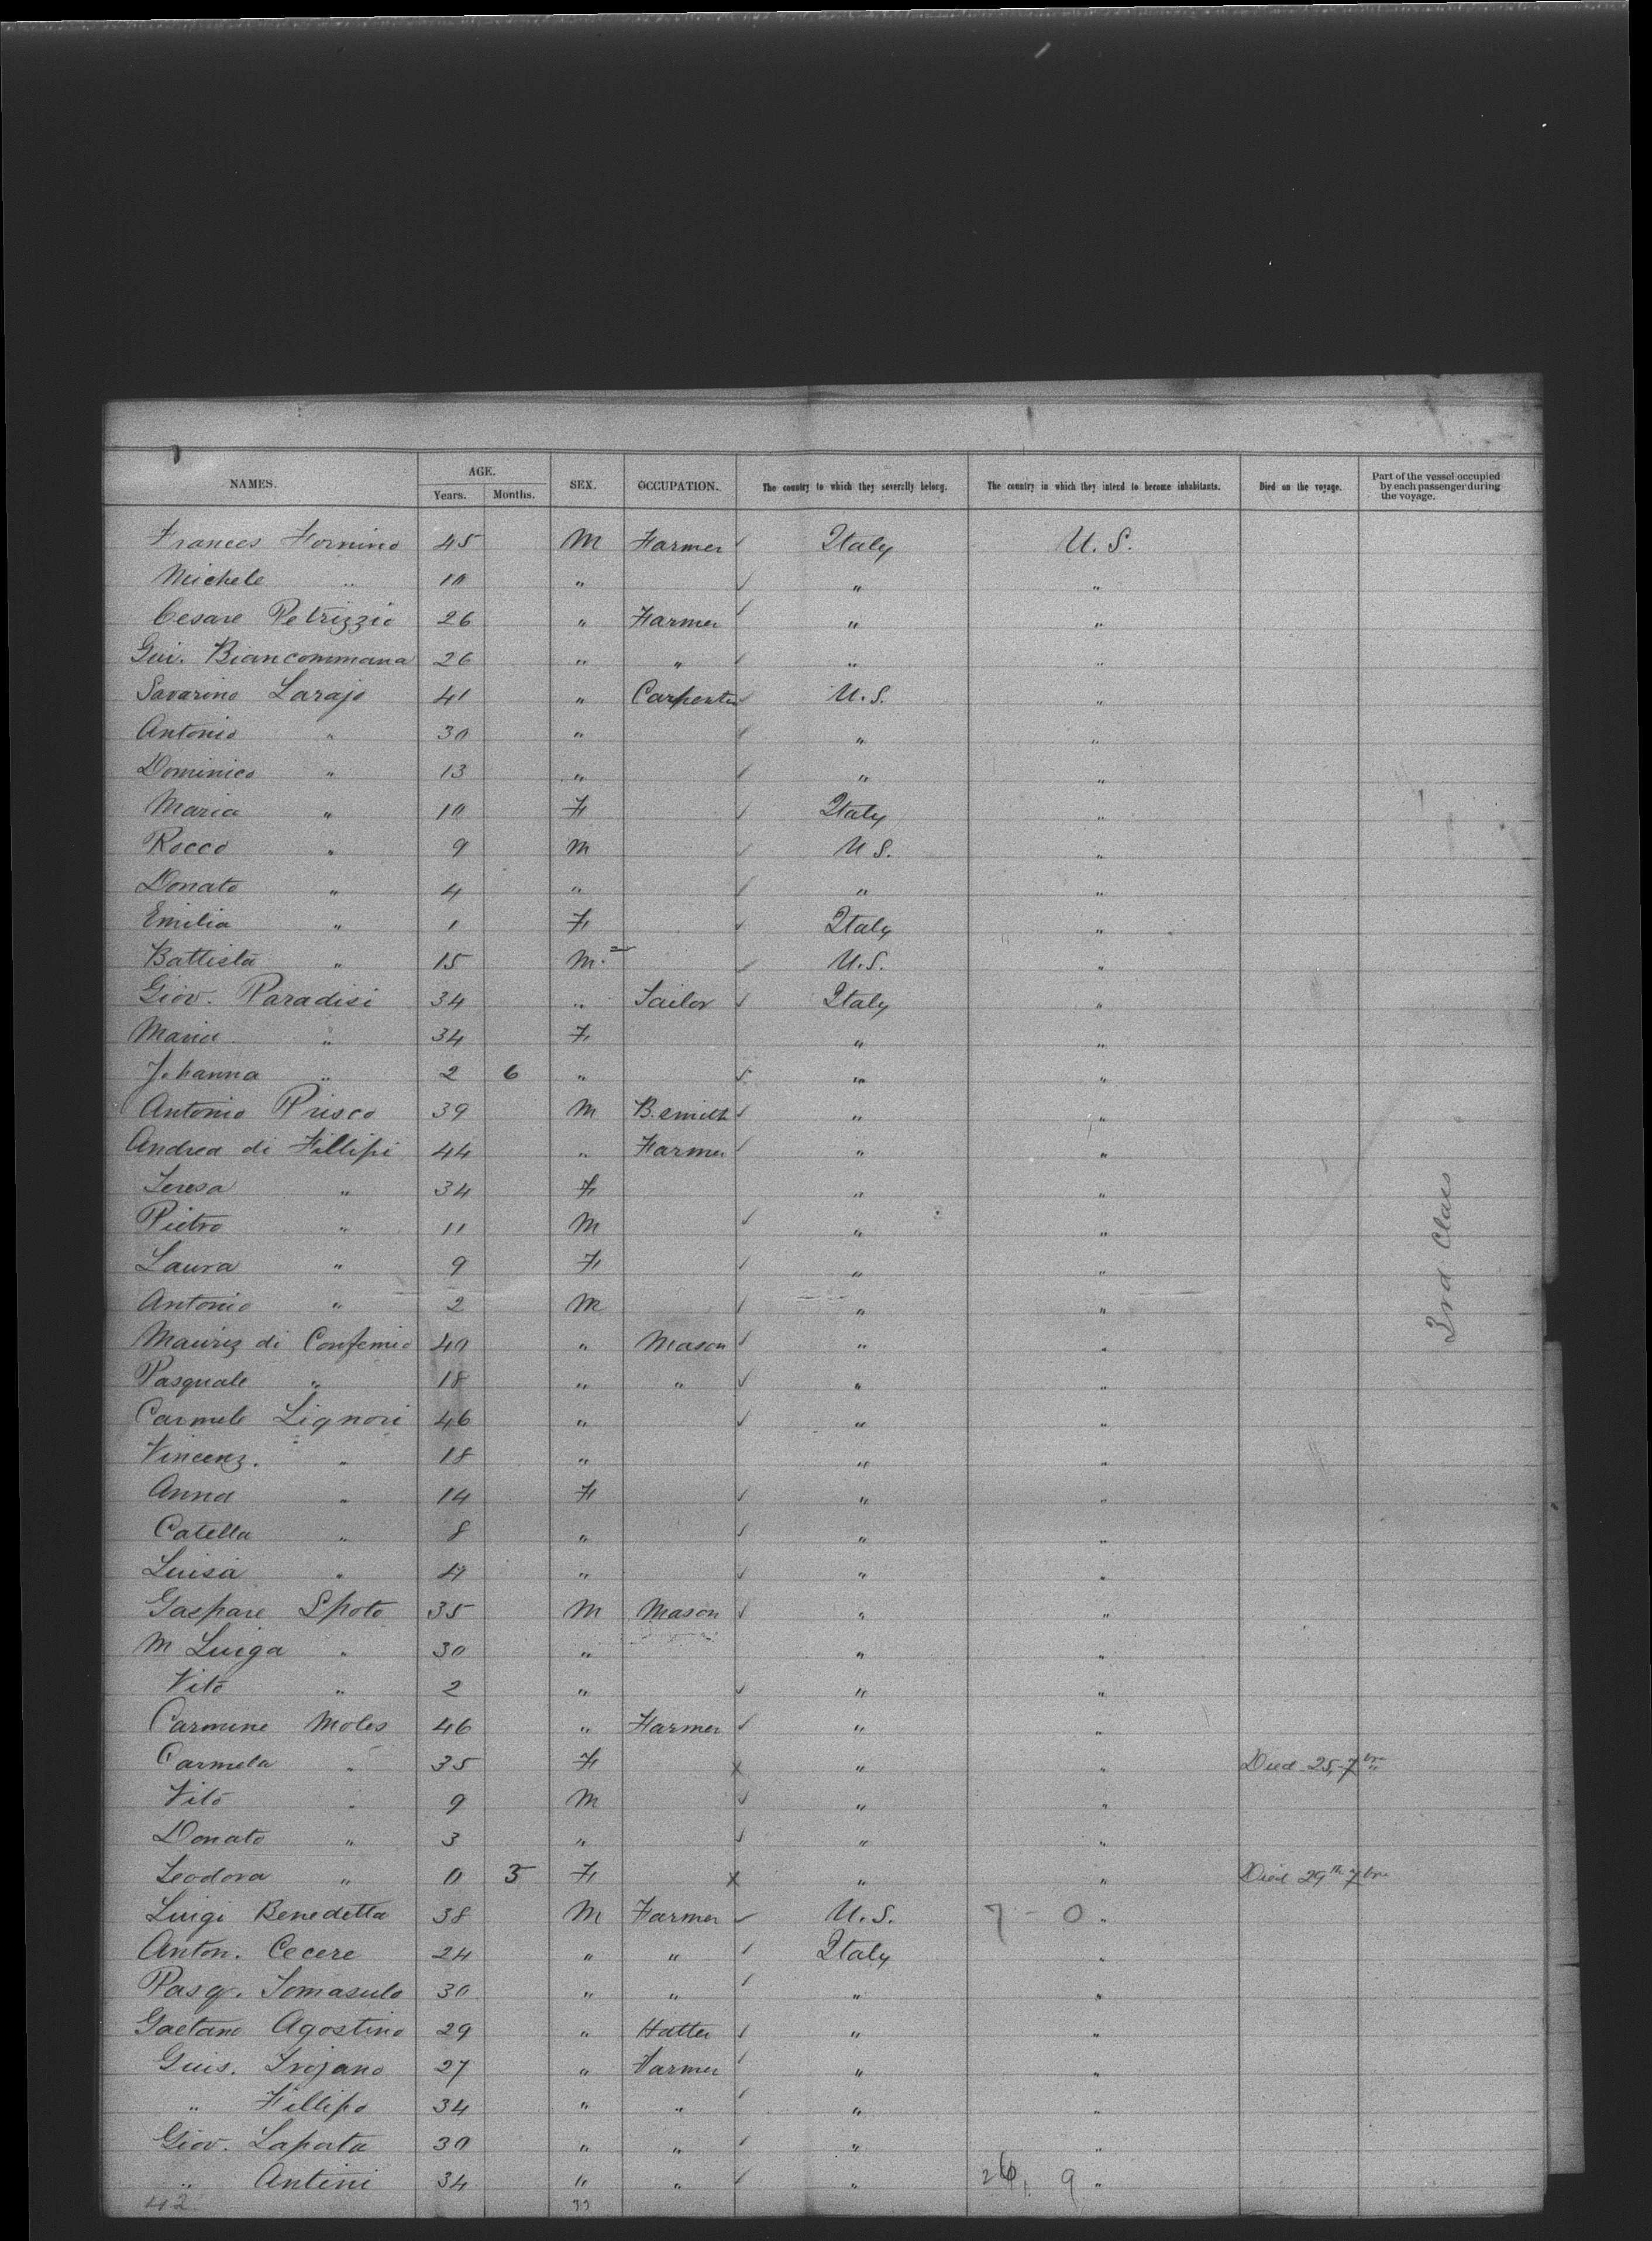 NAMES. AGE. Years. Months. SEX. OCCUPATION. The country to which they severally belong. The country in which they intend to become inhabitants. Died on the voyage. Part of the vessel occupied by each passenger during the voyage.
Frances Fornino 45 M Farmer Italy U.S.
Michele " 10 " " "
Cesare Petrizzio 26 " Farmer " "
Gui. Biancommana 26 " " " "
Savarino Larajo 41 " Carpenter U.S. "
Antonio " 30 " " "
Dominico " 13 " " "
Maria " 10 F Italy "
Rocco " 9 M U S. "
Donato " 4 " " "
Emilia " 1 F Italy "
Battista " 15 M. U.S. "
Giov. Paradisi 34 " Tailor Italy "
Maria " 34 F " "
Johanna " 2 6 " " "
Antonio Prisco 39 M B. smith " "
Andrea di Fillipi 44 " Farmer " "
Teresa " 34 F " "
Pietro " 11 M " "
Laura " 9 F " "
Antonio " 2 M " "
Mauriz di Confemio 40 " Mason " "
Pasquale " 18 " " " "
Carmelo Lignori 46 " " "
Vincenz. " 18 " " "
Anna " 14 F " "
Catella " 8 " " "
Luisa " 4 " " "
Gaspare Spoto 35 M Mason " "
M Luiga " 30 " " "
Vito " 2 " " "
Carmine Moles 46 " Farmer " "
Carmela " 35 F X " " Died 25, 7bre
Vito " 9 M " "
Donato " 3 " " "
Teodora " 0 5 F X " " Died 29th 7bre
Luigi Benedetta 38 M Farmer U.S. 7 - 0 "
Anton. Cecere 24 " " Italy "
Pasq. Tomasulo 30 " " " "
Gaetano Agostino 29 " Hatter " "
Guis. Trojano 27 " Farmer " "
" Fillipo 34 " " " "
Giov. Laporta 30 " " " "
" Antini 34 " " " 9 "
3rd Class